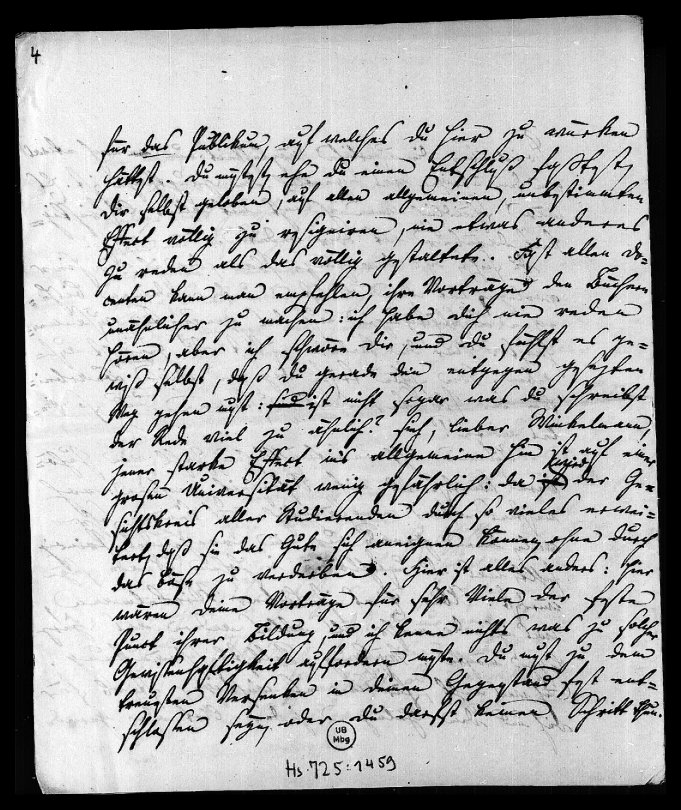 4
für das Publikum, auf welches du hier zu würken
hättest. Du müßtest, ehe Du einen Entschluß faßtest,
Dir selbst geloben, auf allen allgemeinen, unbestimmten
Effect völlig zu resigniren, nie etwas anderes
zu reden als das völlig gestaltete. Fast allen Do-
centen kann man empfehlen, ihre Vorträge den Büchern
unähnlicher zu machen: ich habe dich nie reden
hören, aber ich schwöre Dir, und du fühlst es ge-
wiß selbst, daß du gerade den entgegen gesetzten
Weg gehen mußt: ist nicht sogar was du schreibst
der Rede viel zu ähnlich? Sieh, lieber Winkelmann,
jener starke Effect ins allgemeine hin ist auf einer
grosen Universität wenig gefährlich: da wird der Ge-
sichtskreis aller Studierenden durch so vieles erwei-
tert, daß sie das Gute sich aneignen können, ohne durch
das böse zu verderben. Hier ist alles anders: hier
wären deine Vorträge für sehr Viele der feste
Punct ihrer Bildung, und ich kenne nichts was zu solcher
Gewissenhaftigkeit auffordern müßte. Du mußt zu dem
treuesten Versenken in deinen Gegenstand fest ent-
schlossen seyn, oder du darfst keinen Schritt thun.
UB
Mbg
Hs. 725:1459